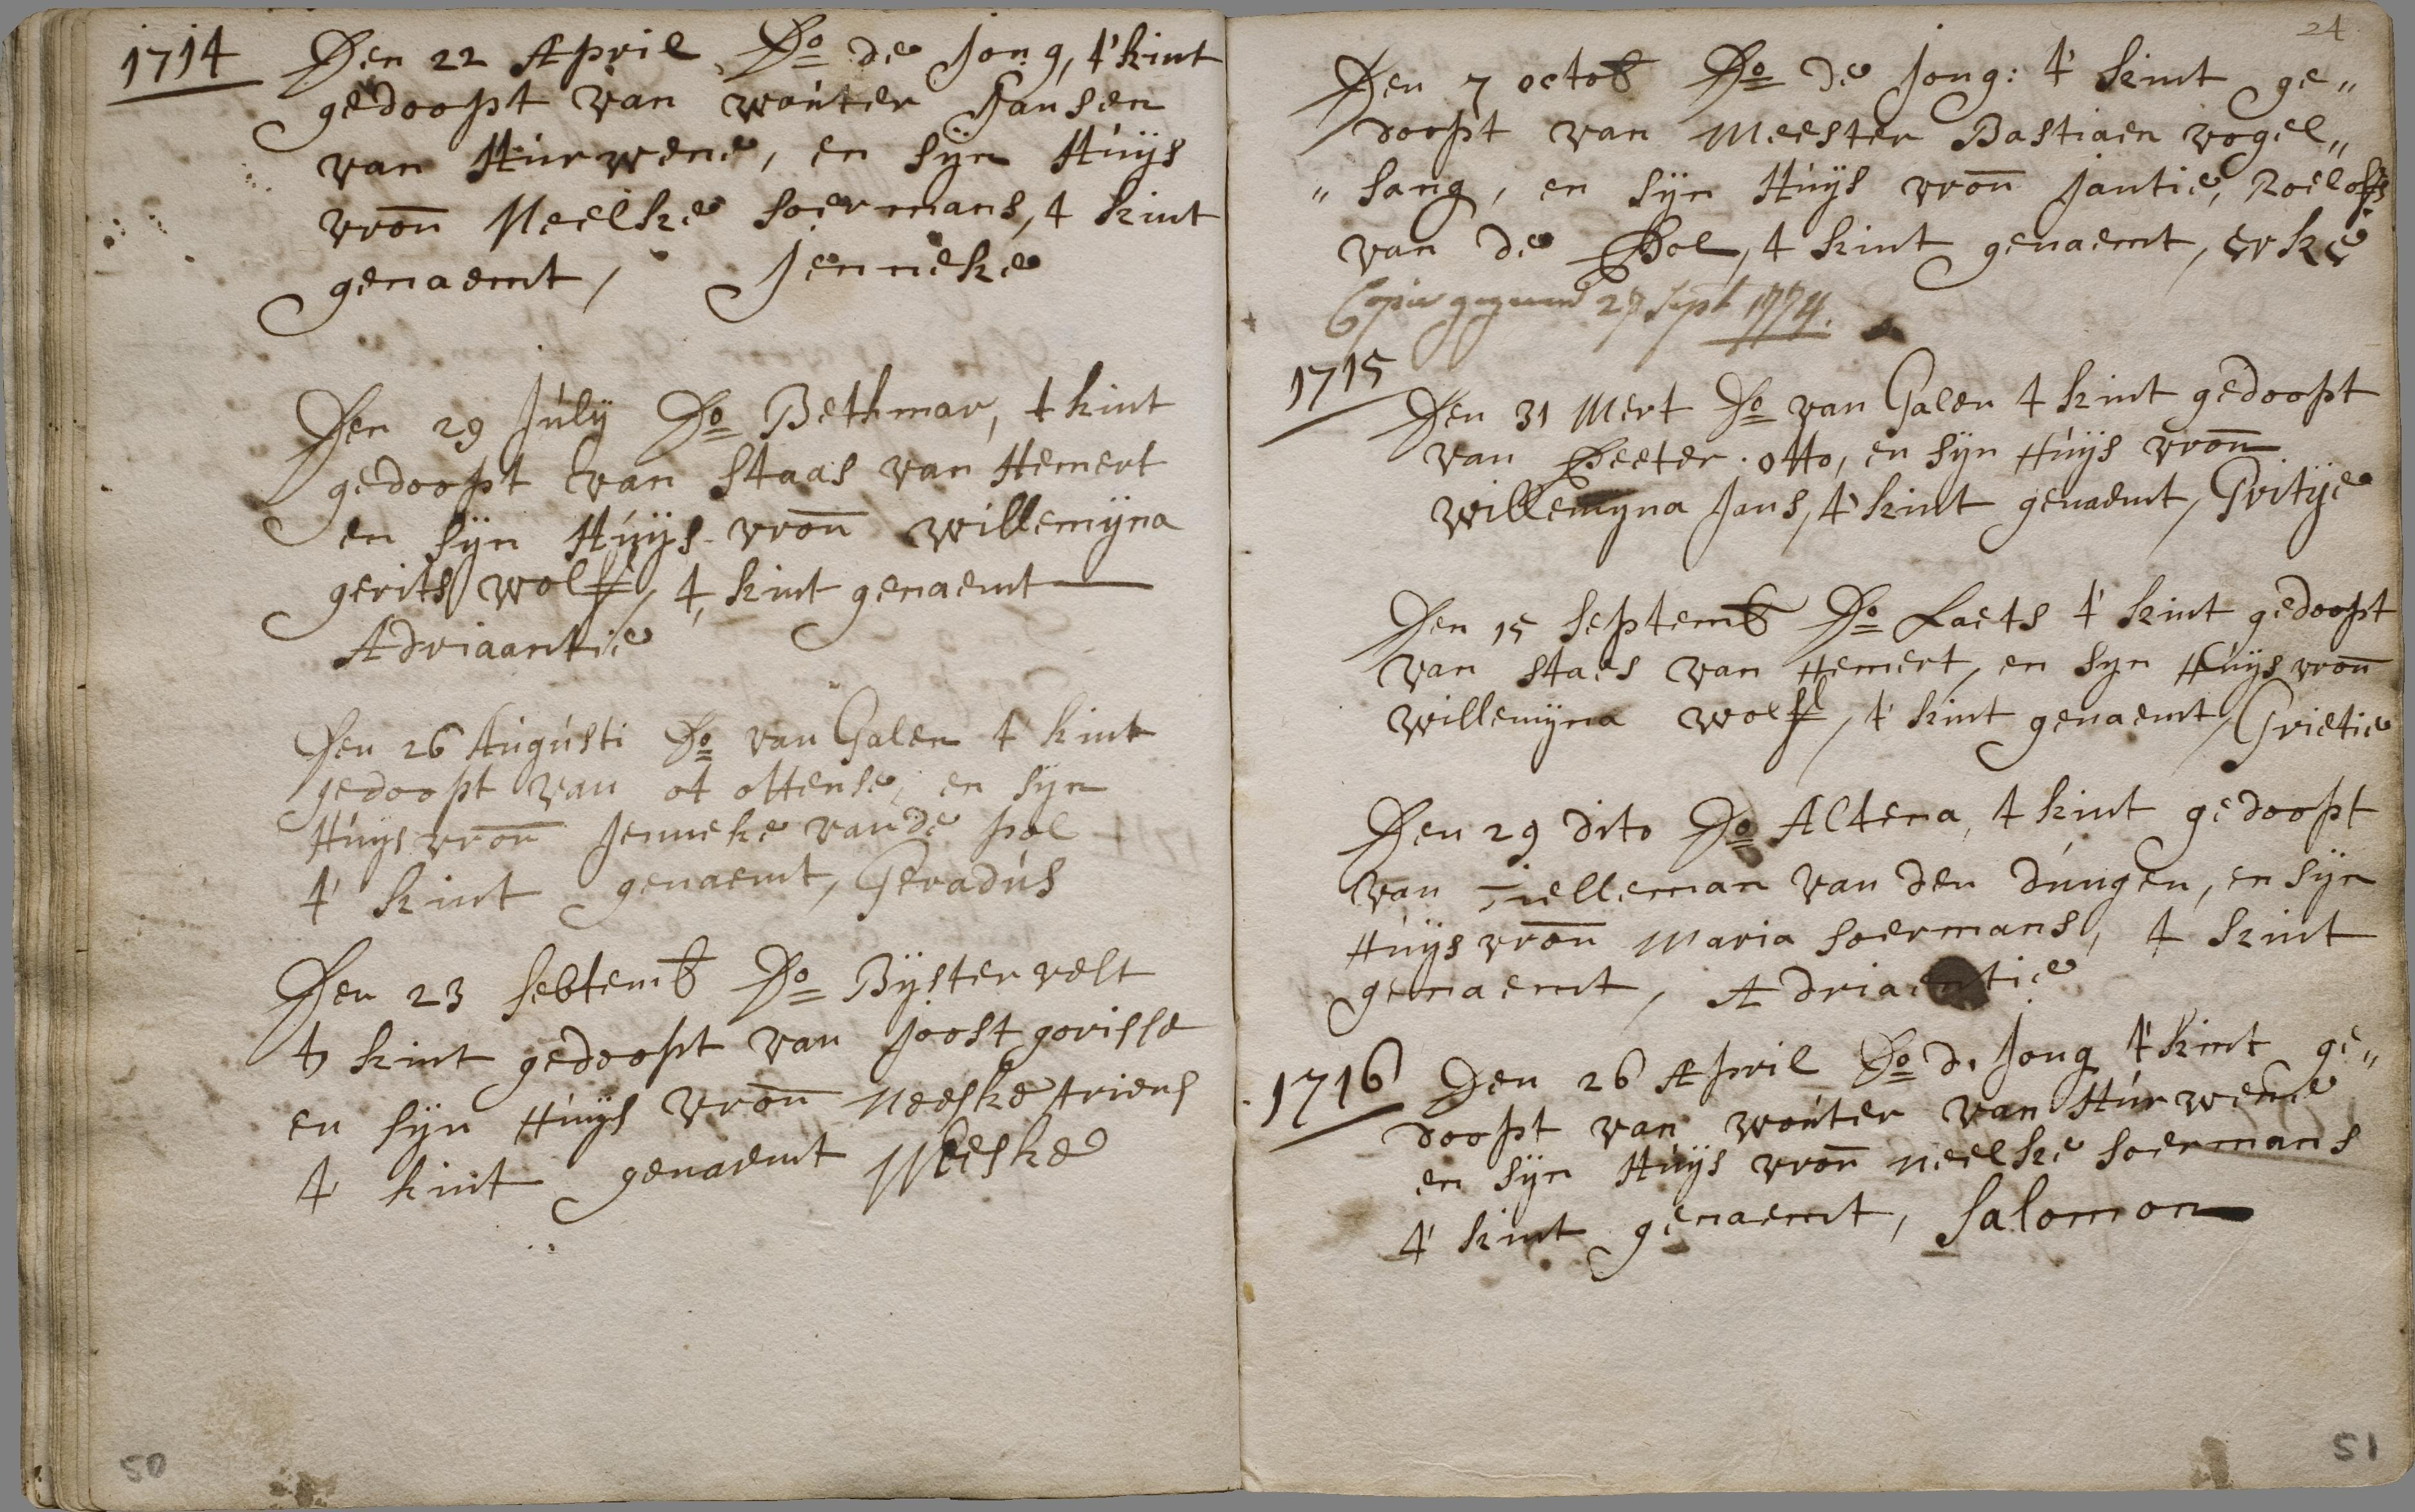 1714
Den 22 April Do de Jong, t' kint
gedoopt van wouter Jansen
van Húrwene, en sÿn Húÿs
vroū Neelke soermans, t kint
genaemt, Jenneke
Den 29 Júlÿ Do Bethmar, t kint
gedoopt van staas van Hemert
en sÿn Húÿs vroū willemÿna
gerits wolff, t, kint genaemt
Adriaantie
Den 26 Aúgústi Do van Galen t kint
gedoopt van ot ottense, en sÿn
Húÿs vroū Jenneke vande pol
t' kint genaemt, Geradús
Den 23 sebtemb Do Bÿstervelt
t, kint gedoopt van Joost gorisse
en sÿn Húÿs vroū Neeske Ariens
t' kint genaemt Meeske
50
24
Den 7 octob Do de Jong: t' kint ge„
doopt van Meester Bastiaen vogel„
„sang, en sÿn Húÿs vroū Jantie, Roeloffs
van de Pol, t kint genaemt, erke
Copie gegeven 27 Sept 1774.
1715
Den 31 Mert Do van Galen t kint gedoopt
van Peeter otto, en sÿn Húÿs vroū
willemÿna Jans, t' kint genaemt, Gritÿe
Den 15 septemb Do Laets t' kint gedoopt
van staes van Hemert, en sÿn Húÿs vroū
willemÿna wolff, t' kint genaemt, Grietie
Den 29 dito Do Altena, t kint gedoopt
van Tielleman van den dúngen, en sÿn
Húÿs vroū Maria soermans, t kint
genaemt, Adriaentie
1716
Den 26 April Do d. Jong t' kint ge„
doopt van woúter van Húrwene
en sÿn Húÿs vroū neelke soermans
t' kint genaemt, Salomon
51